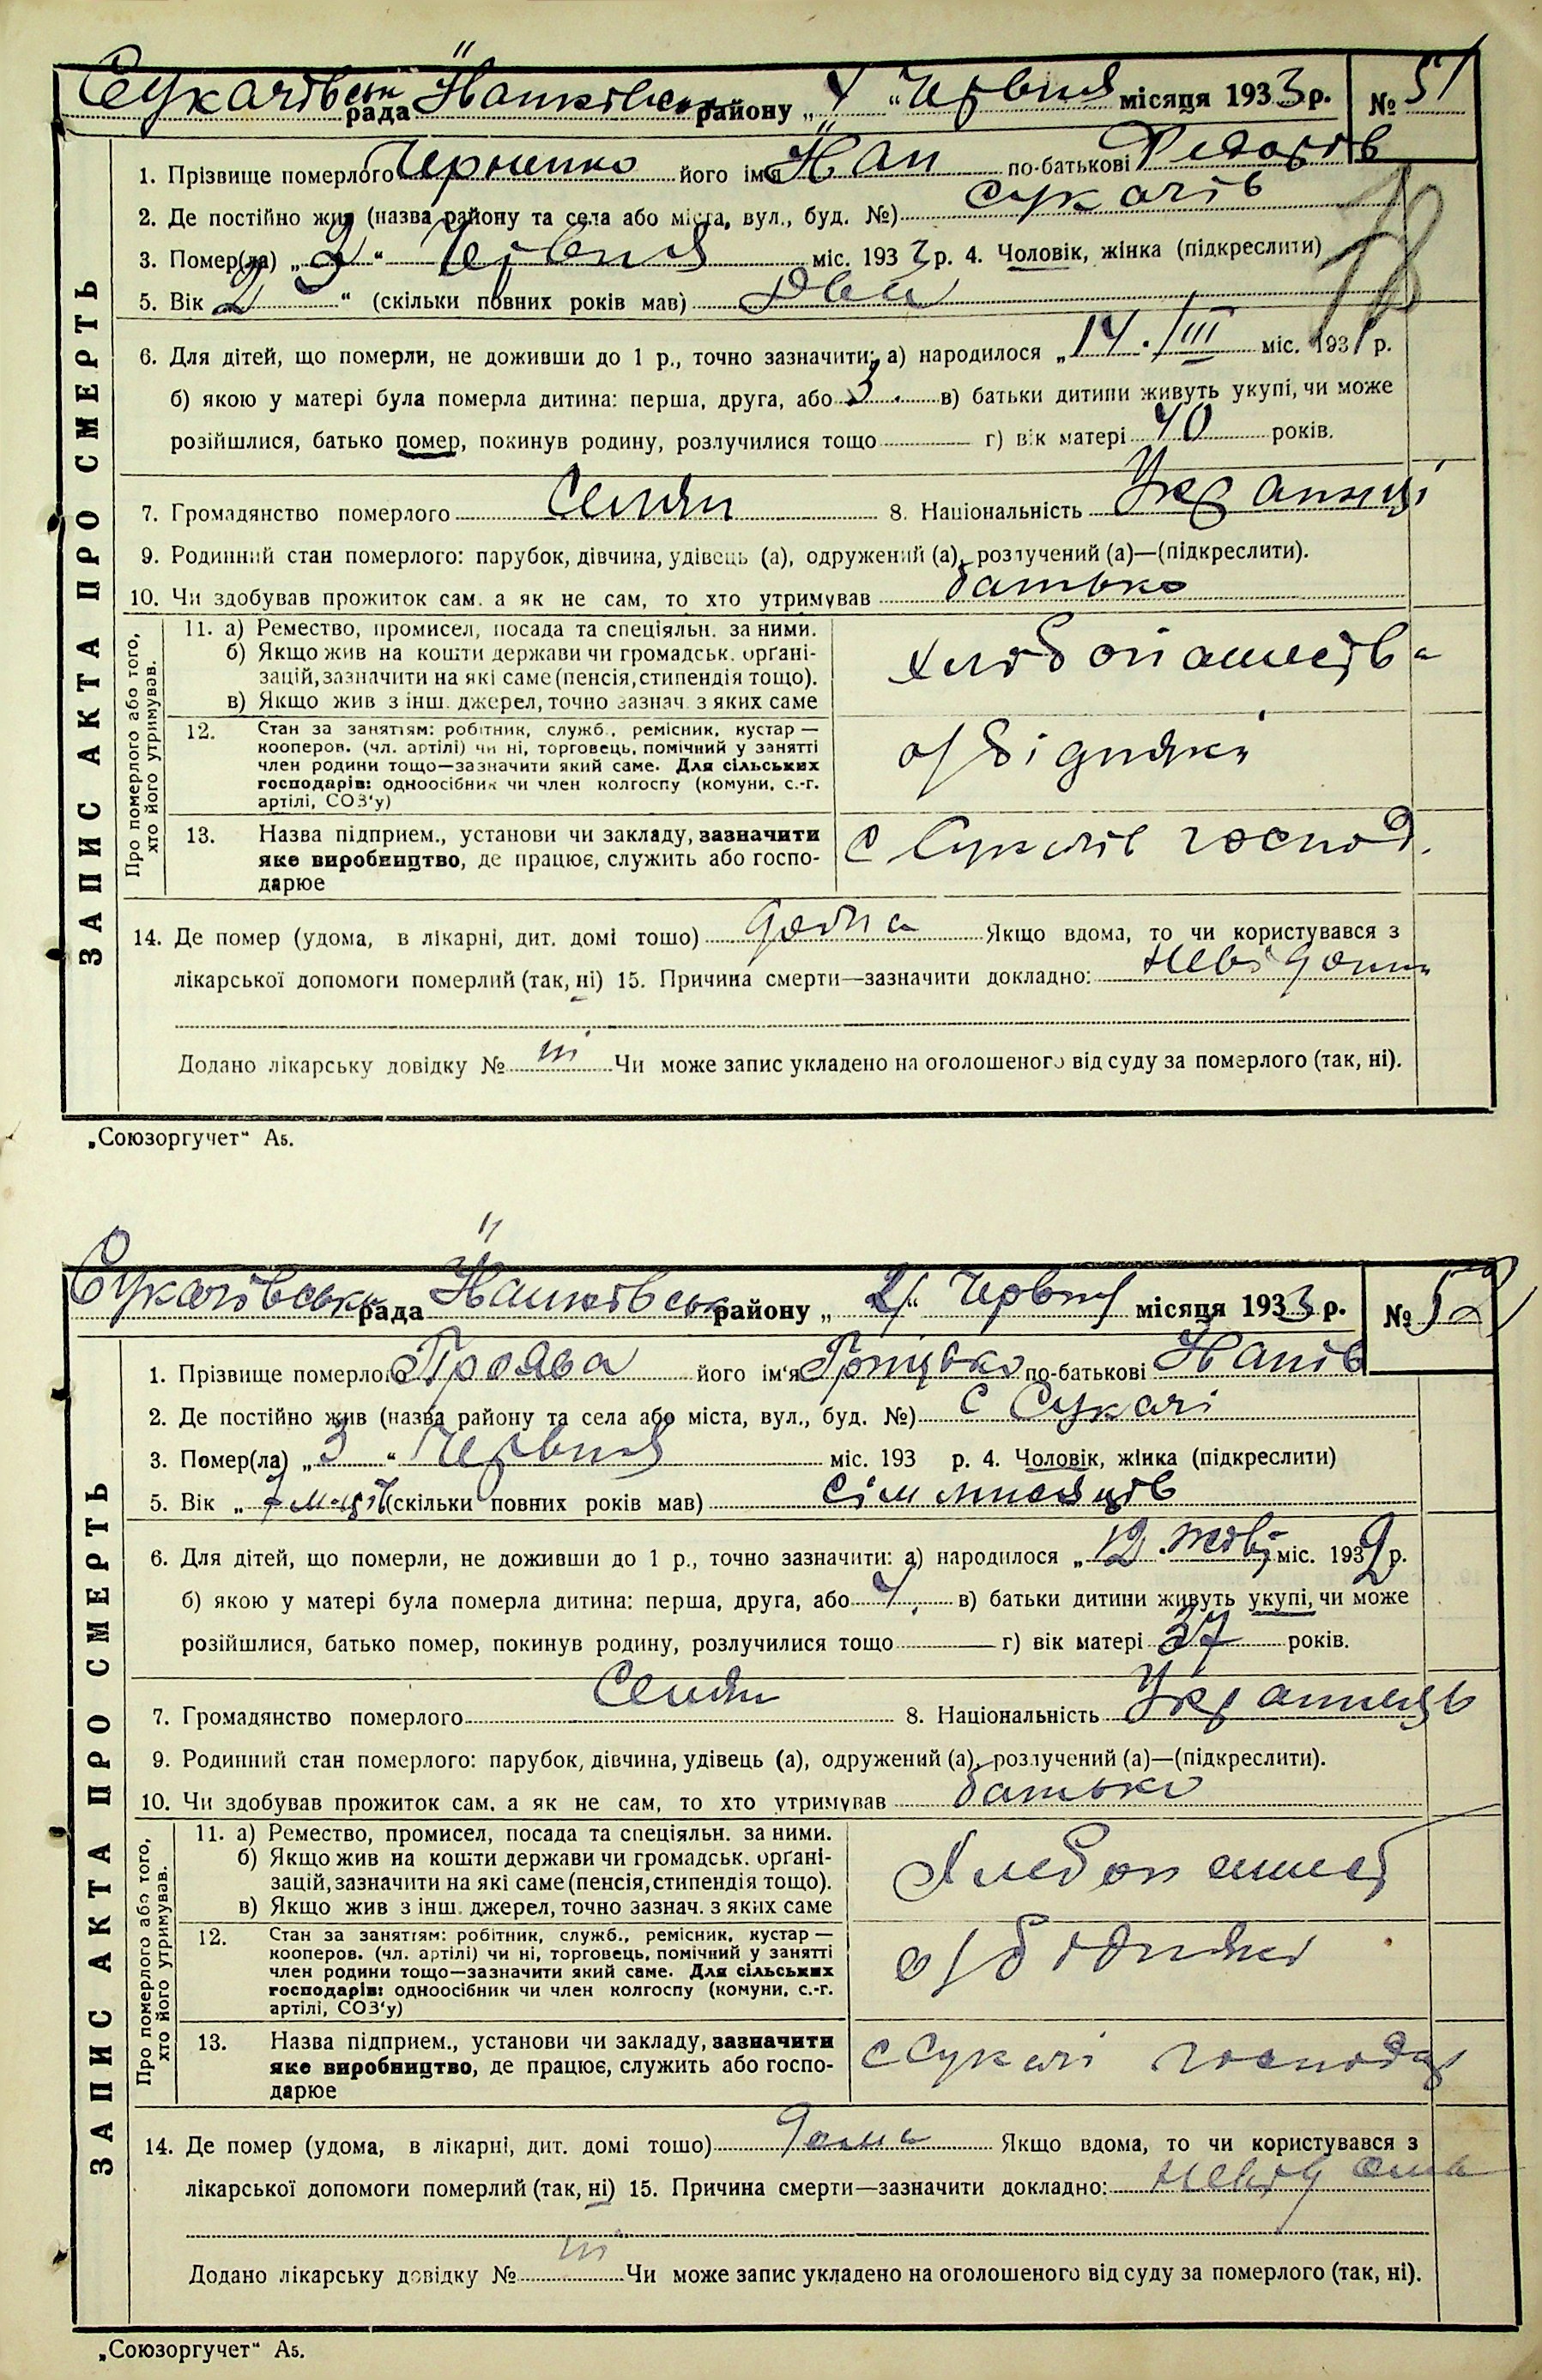 Сукачівськ рада Їванківськ району „4“ Червня місяця 1933 р. № 51
ЗАПИС АКТА ПРО СМЕРТЬ
1. Прізвище померлого Черненко його ім'я Їван по-батькові Федорів
2. Де постійно жив (назва району та села або міста, вул., буд. №) Сукачів
3. Помер(ла) „2“ Червня міс. 1933 р. 4. Чоловік, жінка (підкреслити)
5. Вік 2 “ (скільки повних років мав) два
6. Для дітей, що померли, не доживши до 1 р., точно зазначити: а) народилося „14. III міс. 1931 р.
б) якою у матері була померла дитина: перша, друга, або 3. в) батьки дитини живуть укупі, чи може
розійшлися, батько помер, покинув родину, розлучилися тощо г) вік матері 40 років.
7. Громадянство померлого Селян 8. Національність Українці
9. Родинний стан померлого: парубок, дівчина, удівець (а), одружений (а), розлучений (а)—(підкреслити).
10. Чи здобував прожиток сам, а як не сам, то хто утримував батько
Про померлого або того, хто його утримував.
11. а) Ремество, промисел, посада та спеціяльн. за ними.
б) Якщо жив на кошти держави чи громадськ. орґані-
зацій, зазначити на які саме (пенсія, стипендія тощо).
в) Якщо жив з інш. джерел, точно зазнач. з яких саме
хлібопашеств
12. Стан за заняттям: робітник, служб., ремісник, кустар —
кооперов. (чл. артілі) чи ні, торговець, помічний у занятті
член родини тощо—зазначити який саме. Для сільських
господарів: одноосібник чи член колгоспу (комуни, с.-г.
артілі, СОЗ'у)
о/бідняки
13. Назва підприєм., установи чи закладу, зазначити
яке виробництво, де працює, служить або госпо-
дарює
с Сукачів господ.
14. Де помер (удома, в лікарні, дит. домі тощо) дома Якщо вдома, то чи користувався з
лікарської допомоги померлий (так, ні) 15. Причина смерти—зазначити докладно: невідома
Додано лікарську довідку № ні Чи може запис укладено на оголошеного від суду за померлого (так, ні).
„Союзоргучет“ А5.
Сукачівська рада Їванківськ району „ 4“ Червня місяця 1933 р. № 52
ЗАПИС АКТА ПРО СМЕРТЬ
1. Прізвище померлого Проява його ім'я Грицько по-батькові Їванів
2. Де постійно жив (назва району та села або міста, вул., буд. №) с Сукачі
3. Помер(ла) „3“ Червня міс. 193 р. 4. Чоловік, жінка (підкреслити)
5. Вік „ 7 м-ців (скільки повних років мав) сім мисяців
6. Для дітей, що померли, не доживши до 1 р., точно зазначити: а) народилося „12. жовт міс. 1932 р.
б) якою у матері була померла дитина: перша, друга, або 4. в) батьки дитини живуть укупі, чи може
розійшлися, батько помер, покинув родину, розлучилися тощо г) вік матері 37 років.
7. Громадянство померлого Селян 8. Національність Українець
9. Родинний стан померлого: парубок, дівчина, удівець (а), одружений (а), розлучений (а)—(підкреслити).
10. Чи здобував прожиток сам, а як не сам, то хто утримував батько
Про померлого або того, хто його утримував.
11. а) Ремество, промисел, посада та спеціяльн. за ними.
б) Якщо жив на кошти держави чи громадськ. орґані-
зацій, зазначити на які саме (пенсія, стипендія тощо).
в) Якщо жив з інш. джерел, точно зазнач. з яких саме
Хлебопашест
12. Стан за заняттям: робітник, служб., ремісник, кустар —
кооперов. (чл. артілі) чи ні, торговець, помічний у занятті
член родини тощо—зазначити який саме. Для сільських
господарів: одноосібник чи член колгоспу (комуни, с.-г.
артілі, СОЗ'у)
о/бідняки
13. Назва підприєм., установи чи закладу, зазначити
яке виробництво, де працює, служить або госпо-
дарює
с Сукачі господар
14. Де помер (удома, в лікарні, дит. домі тощо) дома Якщо вдома, то чи користувався з
лікарської допомоги померлий (так, ні) 15. Причина смерти—зазначити докладно: невідома
Додано лікарську довідку № ні Чи може запис укладено на оголошеного від суду за померлого (так, ні).
„Союзоргучет“ А5.